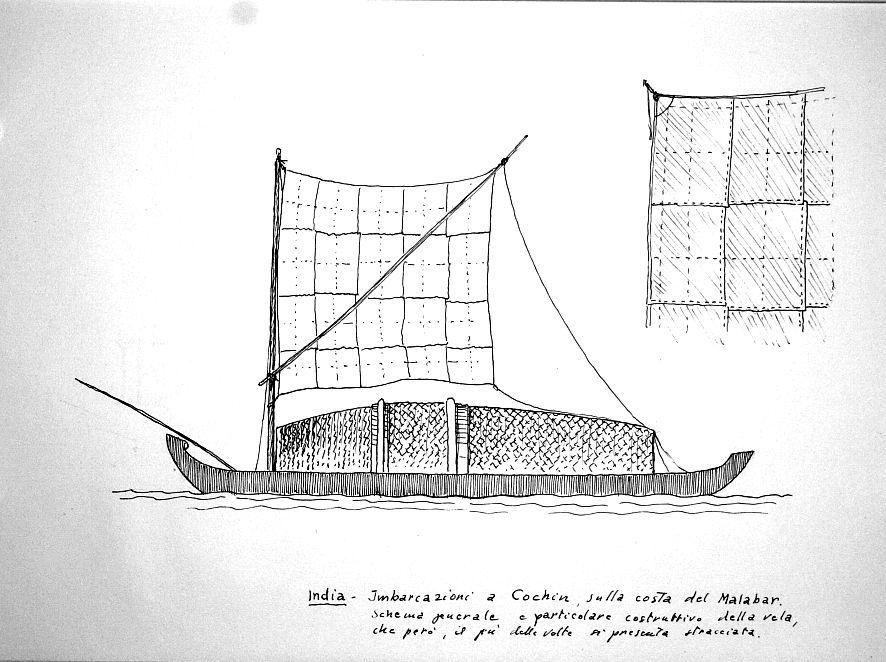 India - Imbarcazioni a Cochin, sulla costa del Malabar.
Schema generale e particolare costruttivo della vela,
che però, il più delle volte si presenta stracciata.